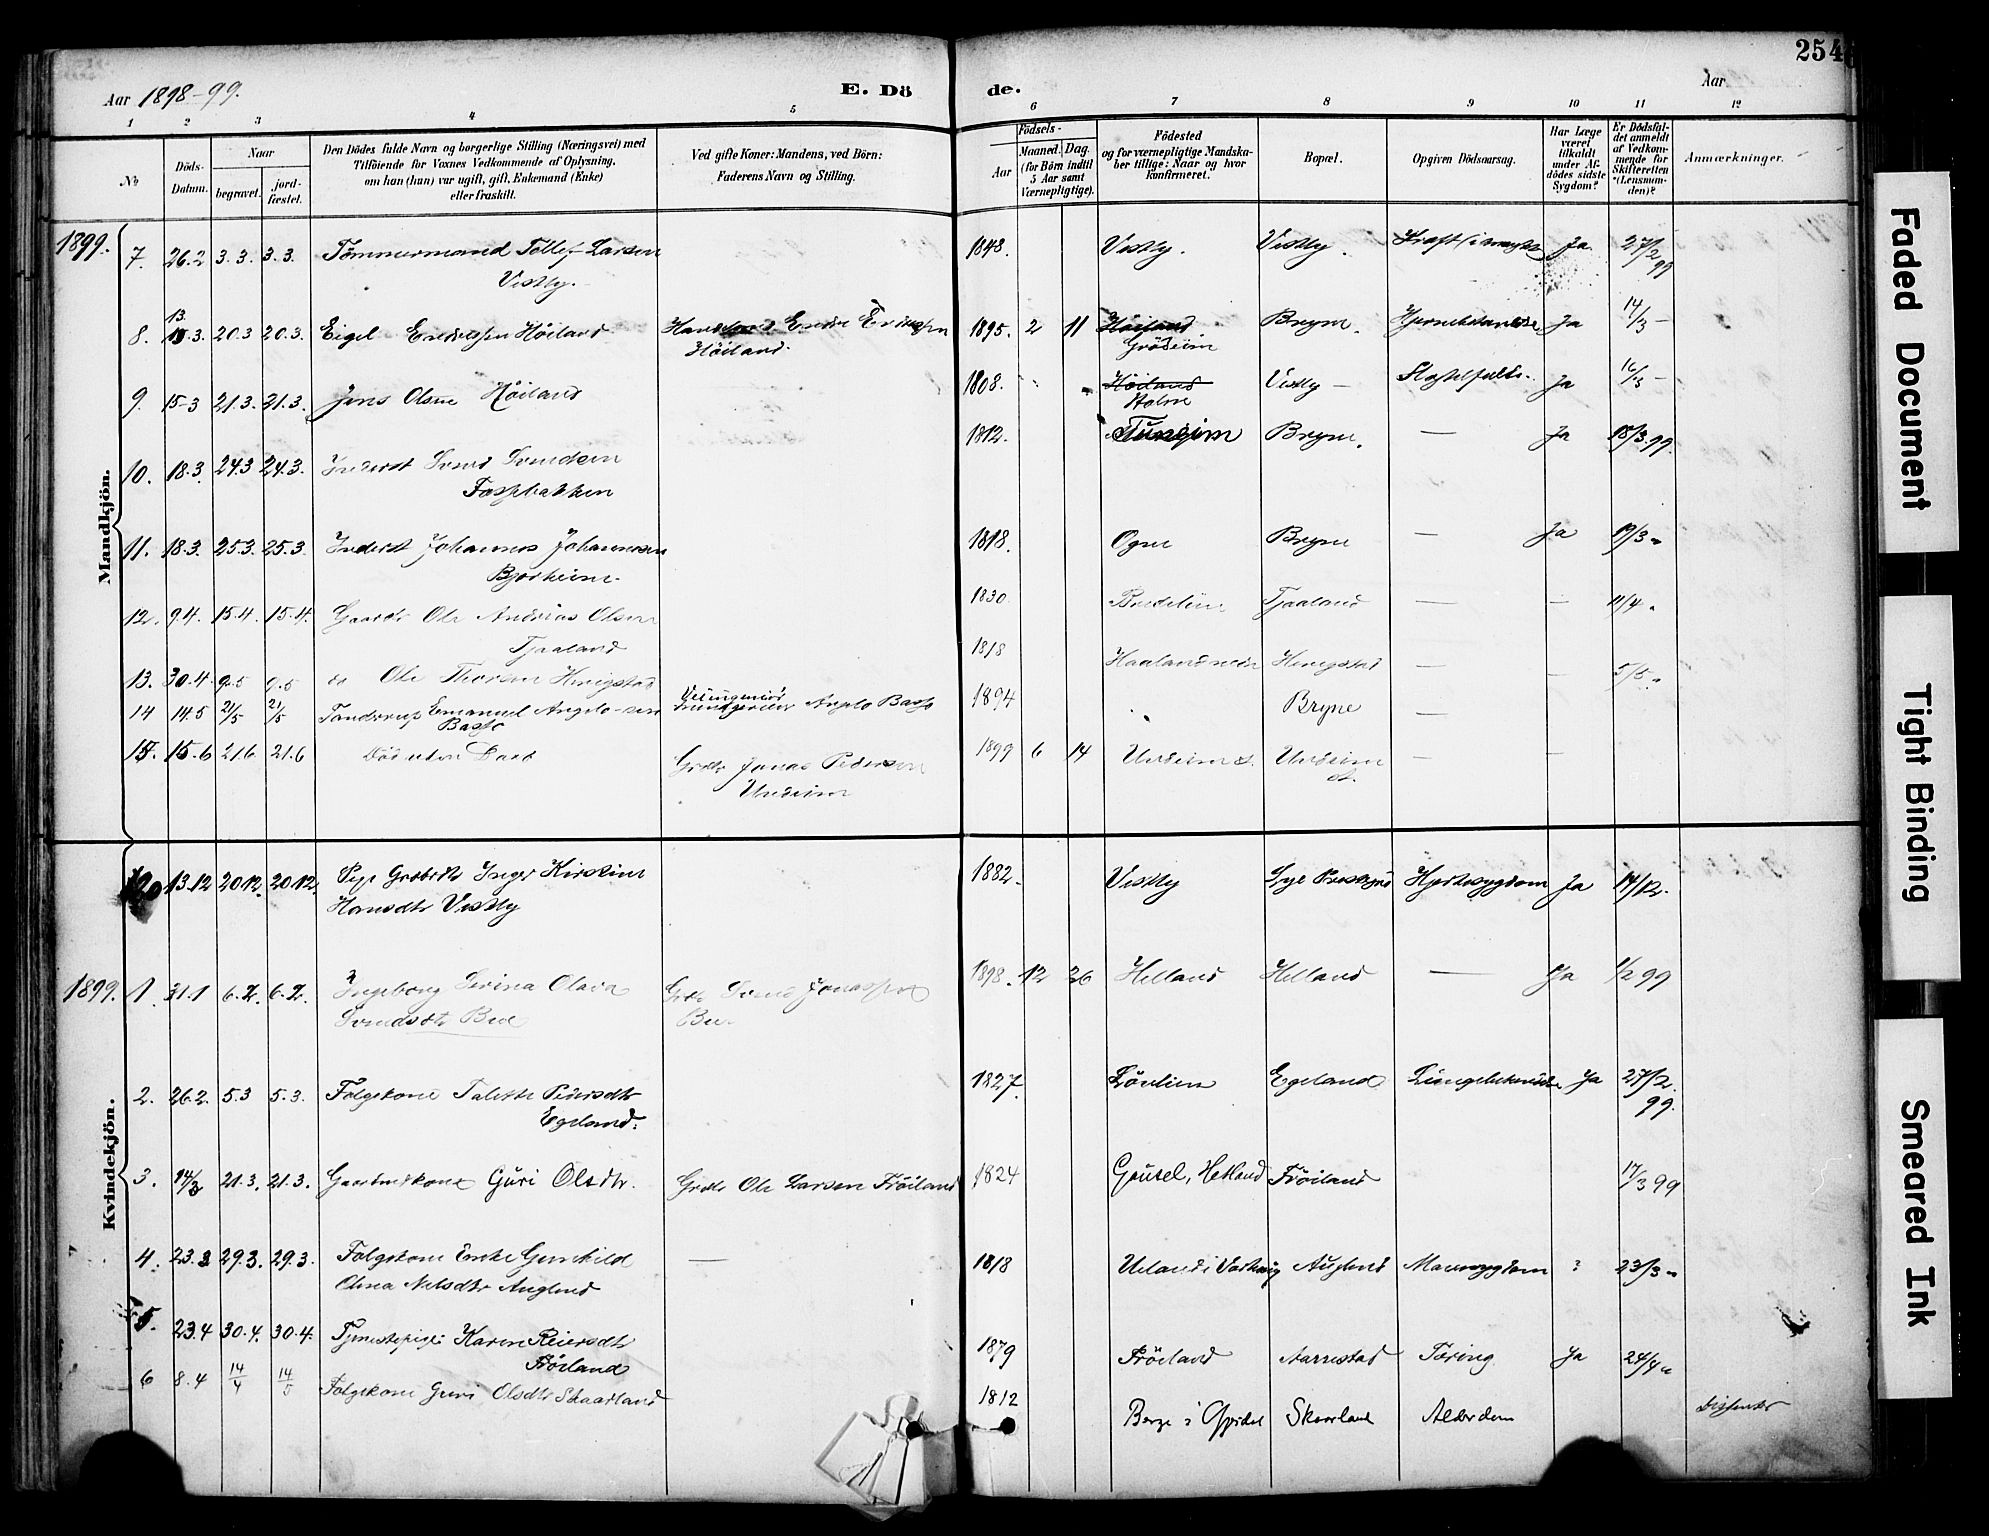 254
Aar 1898-99.
E. Dö
de.
Aar
1 2 3 4 5 6 7 8 9 10 11 12
No
Döds-
Datum.
Naar
begravet.
jord-
fæstet.
Den Dödes fulde Navn og borgerlige Stilling (Næringsvei) med
Tilföiende for Voxnes Vedkommende af Oplysning,
om han (hun) var ugift, gift, Enkemand (Enke)
eller fraskilt.
Ved gifte Koner: Mandens, ved Börn:
Faderens Navn og Stilling.
Födsels-
Aar
Maaned. Dag.
(for Börn indtil
5 Aar samt
Værnepligtige).
Födested
og for værnepligtige Mandska-
ber tillige: Naar og hvor
konfirmeret.
Bopæl.
Opgiven Dödsaarsag.
Har Læge
været
tilkaldt
under Af-
dödes sidste
Sygdom?
Er Dödsfal-
det anmeldt
af Vedkom-
mende for
Skifteretten
(Lensman-
den)?
Anmærkninger.
Mandkjön.
1899. 7. 26.2 3.3. 3.3. Tömmermand Tollef Larsen 1848. Vestly. Vestly. Kræft i Ja 27/2
Vestly. 99
13.
8. 20.3 20.3. Eigel Endresen Höiland Endre Endresen 1895. 2 11 Höiland Bryne. Ja 14/3 -
Höiland. Grödeim
9. 15-3 21.3. 21.3. Jens Olsen Höiland 1808. Höiland Vestly - Ja 16/3 -
Holme
10. 18.3. 24.3 24.3. Inderst Svend Svendsen 1812. Tuneim Bryne. — Ja 18/3 99.
Fossbakken
11. 18.3. 25.3. 25.3. Inderst Johannes Johannesen 1818. Ogne Bryne — Ja 19/3 "
Bjorheim.
12. 9.4. 15.4. 15.4. Gaardr Ole Andreas Olsen 1830. Tjaaland — — 11/4 "
Tjaaland
13. 30.4. 9.5 9.5 do Ole Thorsen Hinigstad 1818 Haaland Hinigstad — 5/5 "
14 14.5 21/5 21/5 Tandrup Emanuel Angelo-sen Veiingeniör Angelo Basso 1894 " Bryne —
Basso
15. 15.6 21.6 21.6 Dödfödt Barn Grdr Jonas Pedersen 1899 6 14 Undeim Undeim — —
Undeim
Kvindekjön.
20 13.12 20.12. 20.12. Pige Inger Kirstine 1882. Vestly Lye Hjertesygdom Ja 14/12.
Hansdtr Vestly
1899. 1. 31.1 6.2. 6.2. Ingeborg Serina Olava Grdr Svend Jonassen 1898. 12 26 Helland Helland — Ja 1/2 99
Svendsdtr Bue Bue.
2. 26.2. 5.3 5.3. Folgekone Talette Pedersdtr 1827. Egeland Ja 27/2.
Egeland. 99.
3. 14/3 21.3. 21.3. Gaardmdkone Guri Olsdtr. Grdr Ole Larsen Fröiland 1824 Gousel, Hetland Fröiland 17/3 99
4. 23.3 29.3. 29.3. Folgekone Enke Gunhild — 1818 Ueland i Auglend Mavesygdom ? 23/3 "
Olina Nelsdtr Auglend
5. 23.4 30.4. 30.4. Tjenestepige Karen Reiersdtr 1879 Fröiland Aarrestad Tæring Ja 24/4 "
Fröiland
6 8.4 14/4 14/5 Folgekone Guri Olsdtr Skaarland 1812 Berge i Skaarland Alderdom Dissenter
Faded Document
Tight Binding
Smeared Ink